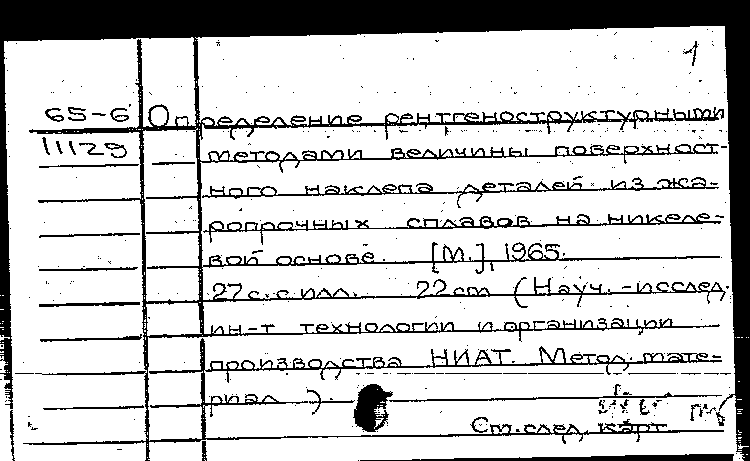 1
65-6 Определение рентгеноструктурными
11129 методами величины поверхност-
ного наклепа деталей из жа-
ропрочных сплавов на никеле-
вой основе. [М.], 1965.
27 с. с илл. 22 cm (Науч.-исслед.
ин-т технологии и организации
производства НИАТ. Метод. мате-
риал).
См. след. карт.